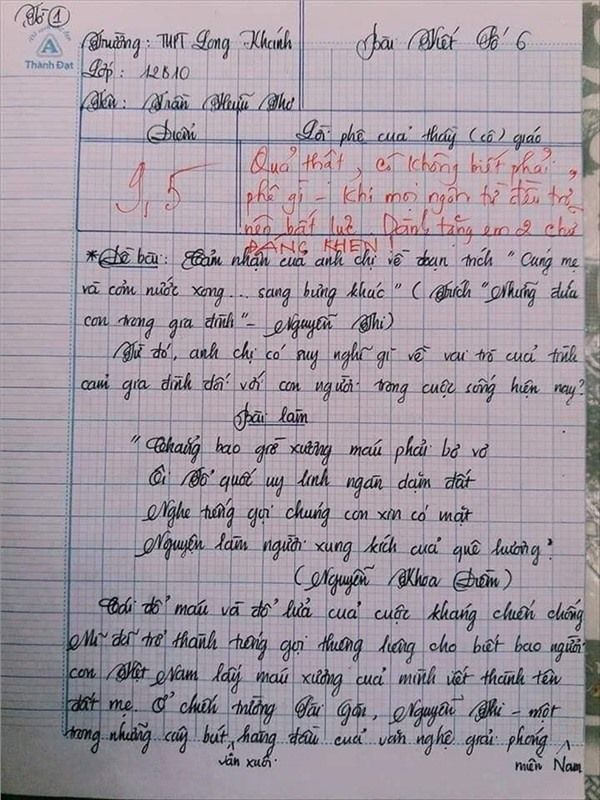 Tờ 1
Thành Đạt
Trường: THPT Long Khánh
Bài Viết Số 6
Lớp: 12B10
Tên: Trần Hữu Thơ
Điểm
Lời phê của thầy (cô) giáo
9,5
Quả thật, cô không biết phải
phê gì - khi mọi ngôn từ đều trở
nên bất lực. Dành tặng em 2 chữ
ĐÁNG KHEN!
*Đề bài: Cảm nhận của anh chị về đoạn trích "Cúng mẹ
và cơm nước xong... sang bưng khác" (Trích "Những đứa
con trong gia đình" - Nguyễn Thi)
Từ đó, anh chị có suy nghĩ gì về vai trò của tình
cảm gia đình đối với con người trong cuộc sống hiện nay?
Bài làm
"Chẳng bao giờ xương máu phải bơ vơ
Ôi Tổ quốc uy linh ngàn dặm đất
Nghe tiếng gọi chúng con xin có mặt
Nguyện làm người xung kích của quê hương"
(Nguyễn Khoa Điềm)
Cái đổ máu và đổ lửa của cuộc kháng chiến chống
Mĩ đã trở thành tiếng gọi thương lương cho biết bao người
con Việt Nam lấy máu xương của mình viết thành tên
đất mẹ. Ở chiến trường Sài Gòn, Nguyễn Thi - một
trong những cây bút hàng đầu của văn nghệ giải phóng
văn xuôi
miền Nam